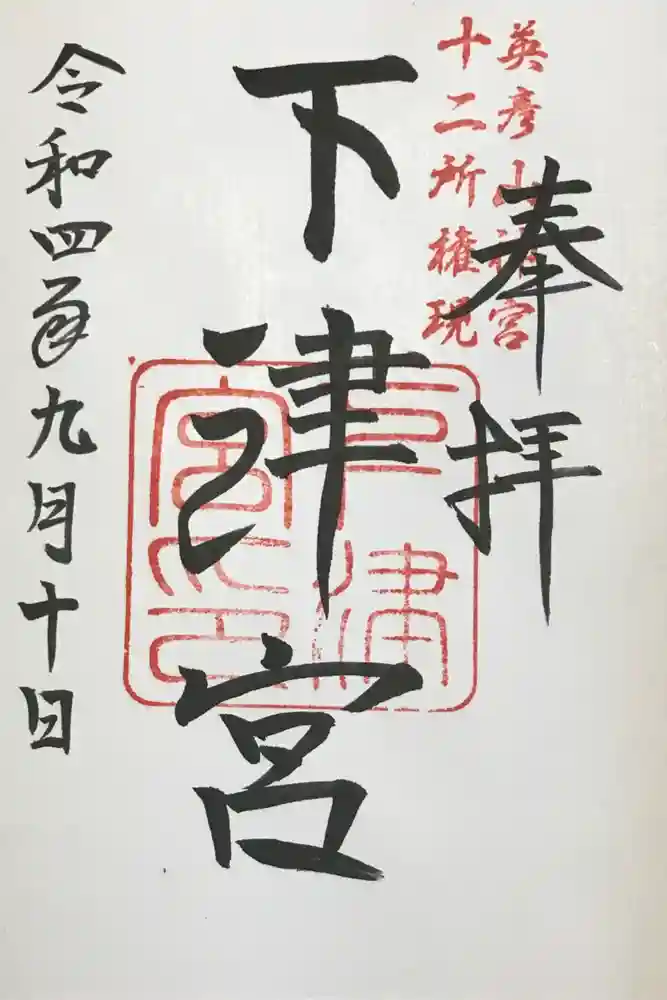 英彦山神宮
十二所権現
奉拝
下津宮
下津
宮之印
令和四年九月十日